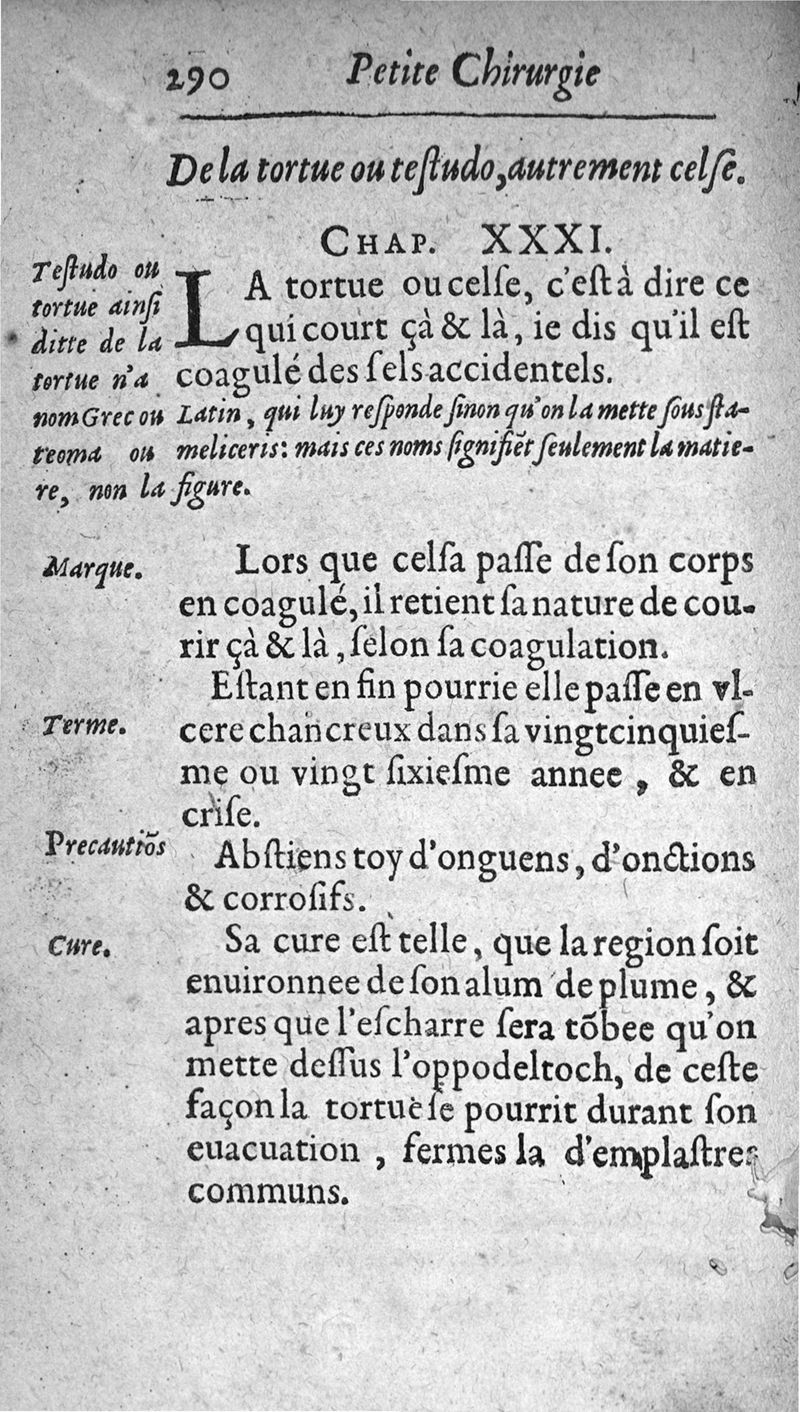 290 Petite Chirurgie
De la tortue ou teſtudo, autrement celſe.
CHAP. XXXI.
Teſtudo ou
tortue ainſi
ditte de la
tortue n'a
LA tortue ou celſe, c'eſt à dire ce
qui court çà & là, ie dis qu'il eſt
coagulé des ſels accidentels.
nom Grec ou Latin, qui luy reſponde ſinon qu'on la mette ſous ſta-
teoma ou meliceris: mais ces noms ſignifiẽt ſeulement la matie-
re, non la figure.
Marque.
Lors que celſa paſſe de ſon corps
en coagulé, il retient ſa nature de cou-
rir çà & là, ſelon ſa coagulation.
Eſtant en fin pourrie elle paſſe en vl-
Terme.
cere chancreux dans ſa vingtcinquieſ-
me ou vingt ſixieſme annee, & en
criſe.
Precautiõs
Abſtiens toy d'onguens, d'onctions
& corroſifs.
Cure.
Sa cure eſt telle, que la region ſoit
enuironnee de ſon alum de plume, &
apres que l'eſcharre ſera tõbee qu'on
mette deſſus l'oppodeltoch, de ceſte
façon la tortue ſe pourrit durant ſon
euacuation, fermes la d'emplaſtres
communs.